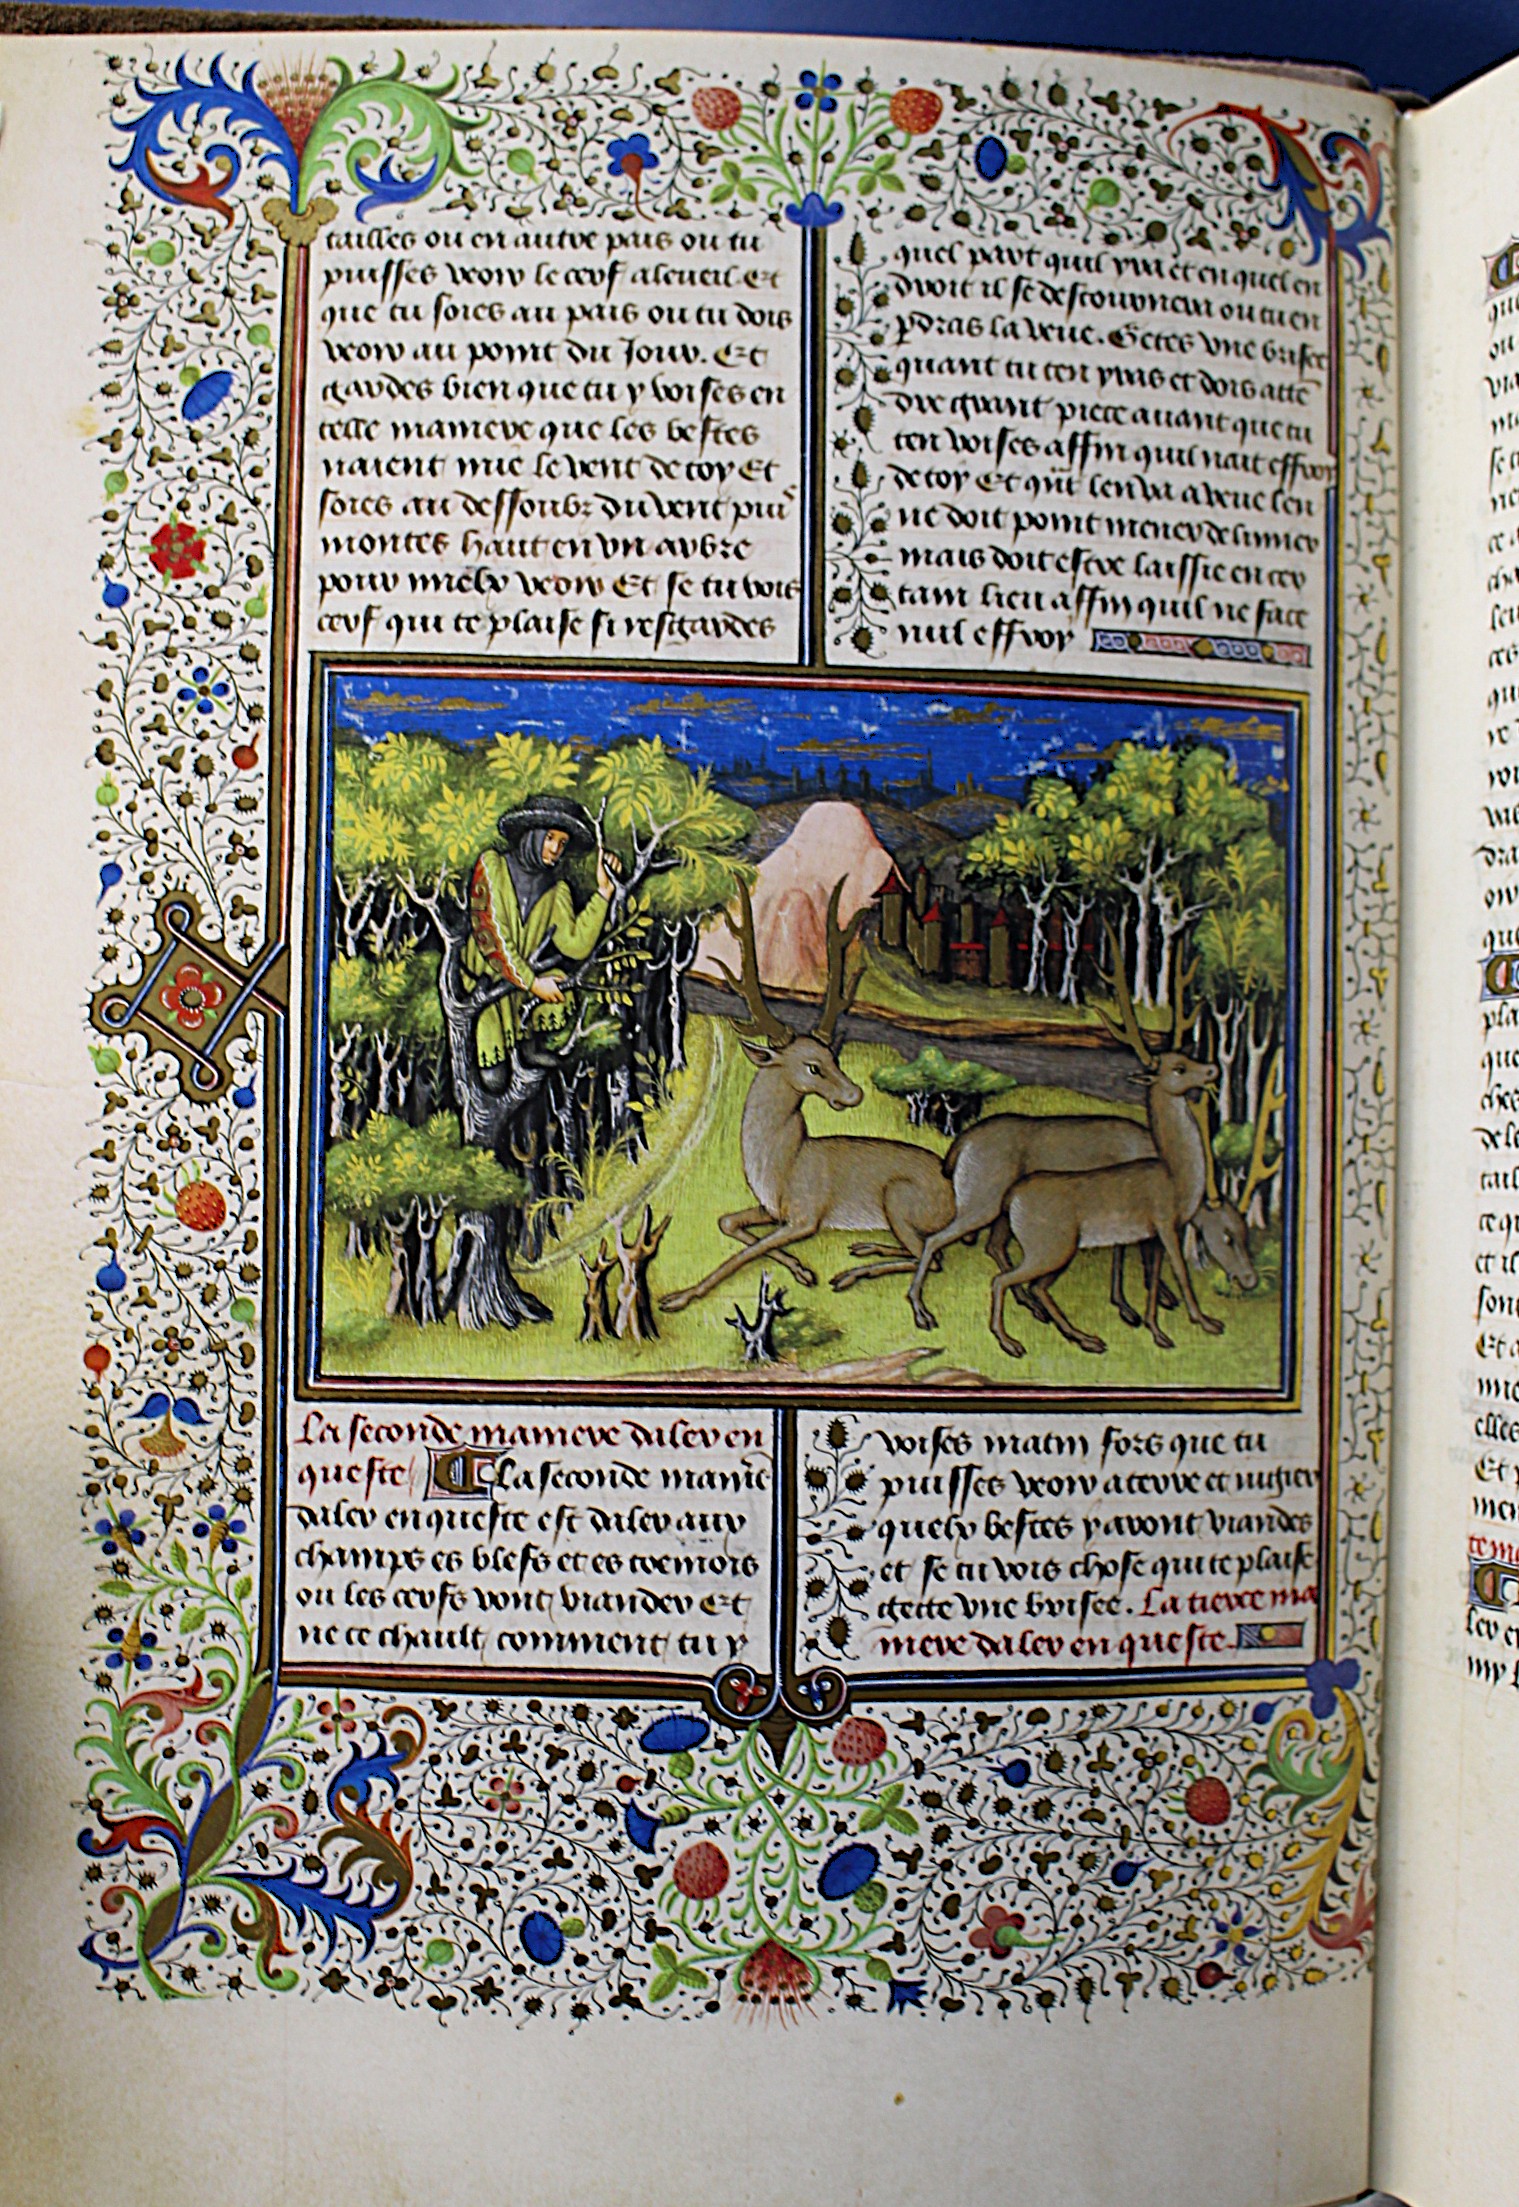 tailles ou en autre pais ou tu
puisses veoir le cerf a leueil Et
que tu soies au pais ou tu dois
veoir au point du Jour. Et
gardes bien que tu y voises en
telle maniere que les bestes
naient mie le vent de toy Et
soies au dessoubz du vent puis
montes hault en un arbre
pour mielx veoir Et se tu vois
cerf qui te plaise si resgardes
quel part quil yra et en quel en
droit il se destournera ou tu en
pdras la veue. Getes une brisee
quant tu ten yras et dois atte
dre grant piece auant que tu
ten voises affin quil nait effroy
de toy Et qnt len va a veue len
ne doit point mener de limier
mais doit estre laissie en cer
tain lieu affin quil ne face
nul effroy
La seconde maniere daler en
queste La seconde manie
daler en queste est daler aux
champs es blefs et es
ou les cerfs vont viander Et
ne te chault comment tu y
voises matin fors que tu
puisses veoir a terre et
quelx bestes y auront viandes
et se tu vois chose qui te plaise
gette une brisee. La tierce ma
niere daler en queste